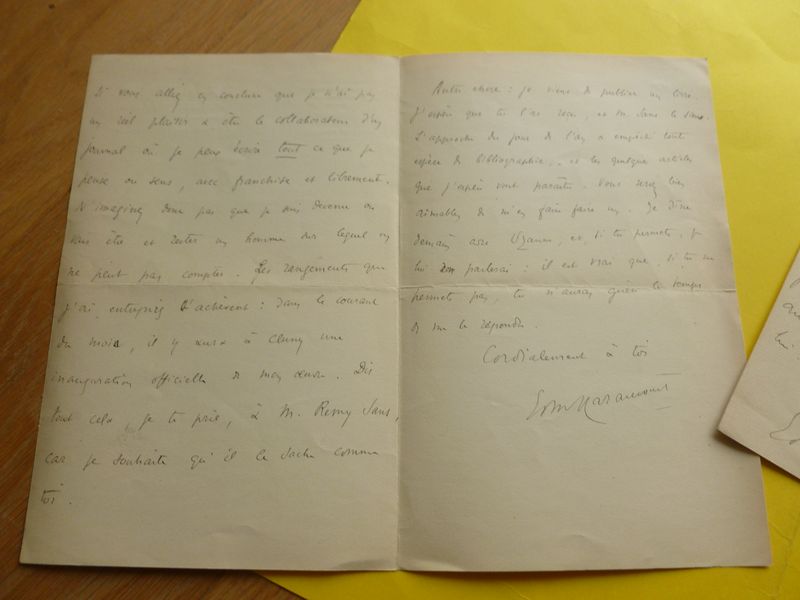 Si vous alliez en conclure que je n'ai pas
un réel plaisir à être le collaborateur d'un
journal où je peux écrire tout ce que je
pense ou sens, avec franchise et librement.
N'imaginez donc pas que je suis devenu ou
vais être et rester un homme sur lequel on
ne peut pas compter. Les rangements que
j'ai entrepris s'achèvent : dans le courant
du mois, il y aura à Cluny une
inauguration officielle de mon œuvre. Dis
tout cela, je te prie, à M. Remy Sans,
car je souhaite qu'il le sache comme
toi.
Autre chose : je viens de publier un livre.
J'espère que tu l'as reçu, et M. Sans le sien.
L'approche du jour de l'an a empêché toute
espèce de bibliographie, et les quelques articles
que j'espère vont paraître. Vous serez bien
aimables de m'en faire faire un. Je dîne
demain avec Uzanne, et, si tu permets, je
lui en parlerai : il est vrai que, si tu ne
permets pas, tu n'auras guère le temps
de me le répondre.
Cordialement à toi
Edm Haraucourt